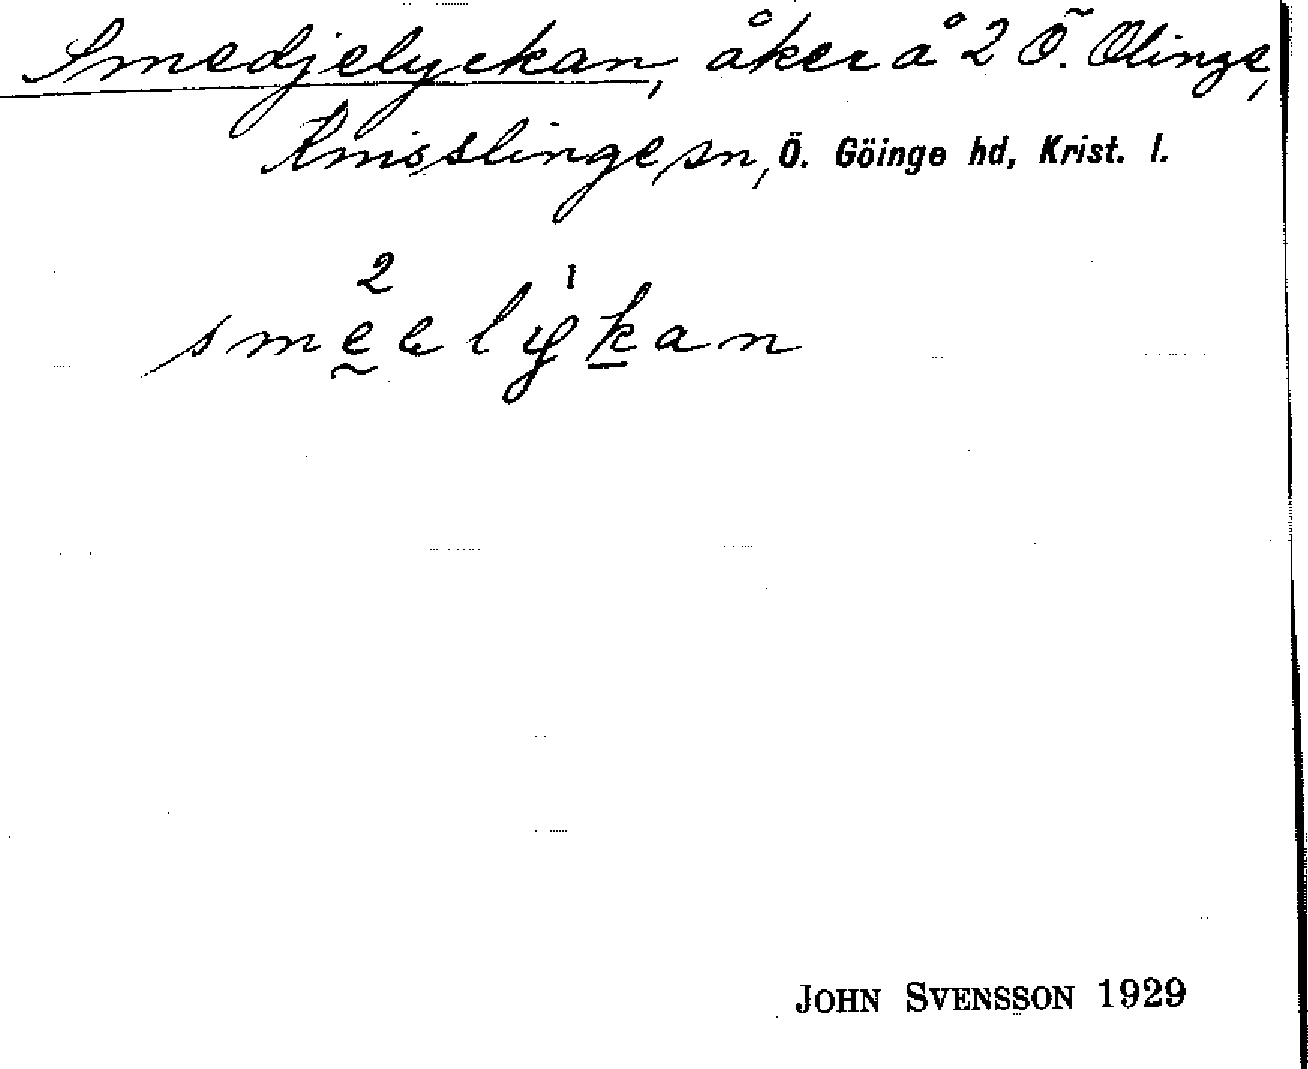 Smedjelyckan, åker å 2 Ö. Olinge,
Knisslinge sn, Ö. Göinge hd, Krist. l.
2 1
smeelykan
JOHN SVENSSON 1929